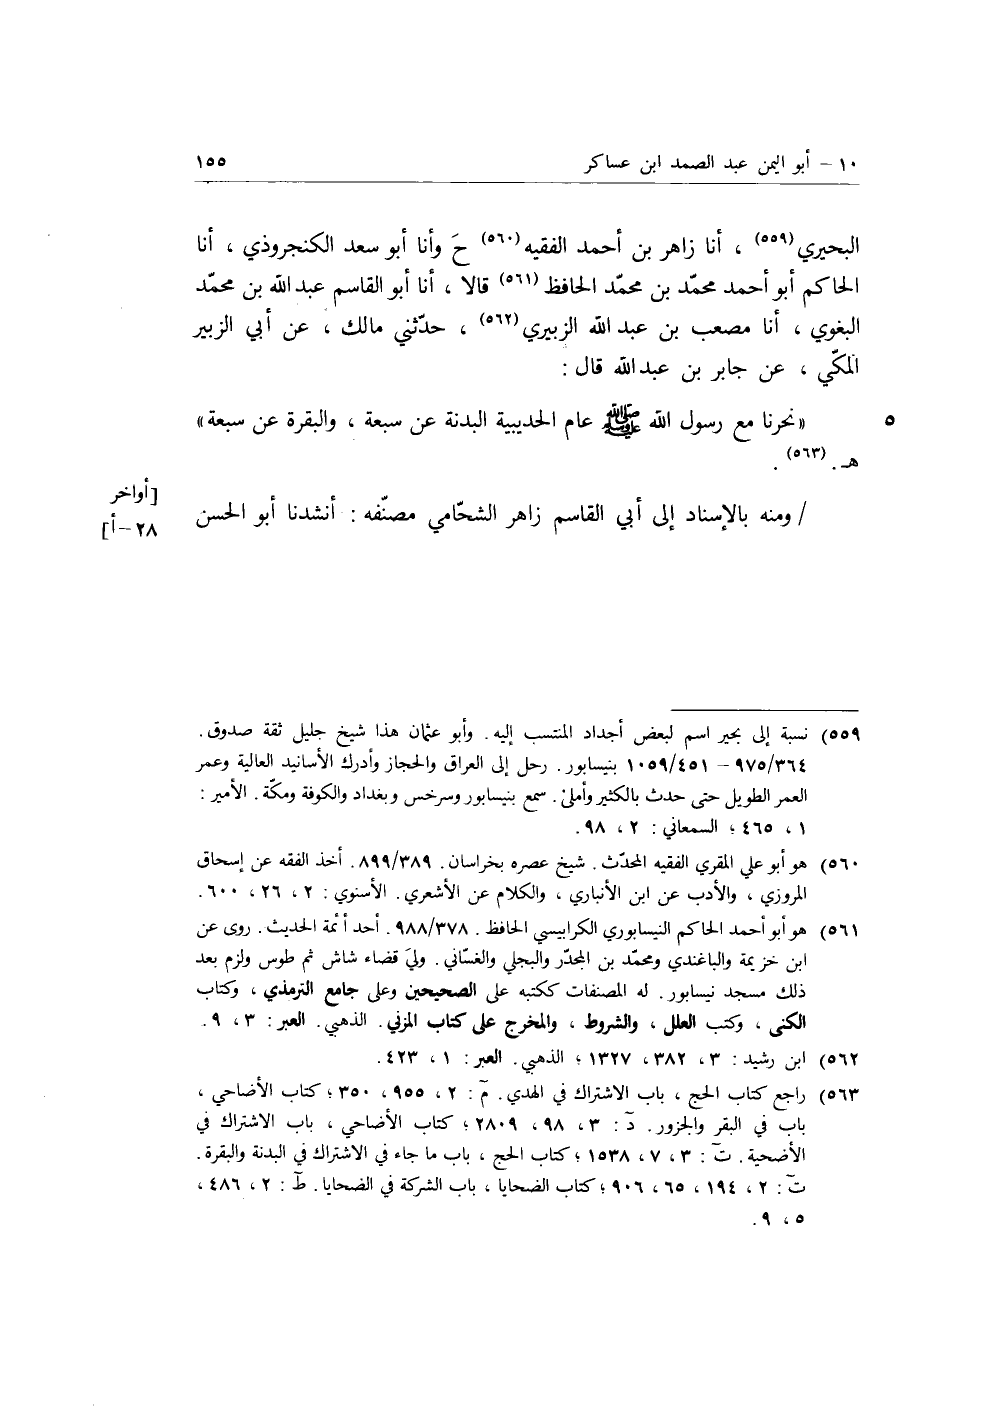 ١٠ – أبو اليمن عبد الصمد ابن عساكر ١٥٥
البحيري(٥٥٩) ، أنا زاهر بن أحمد الفقيه(٥٦٠) حَ وأنا أبو سعد الكنجروذي ، أنا
الحاكم أبو أحمد محمّد بن محمّد الحافظ(٥٦١) قالا ، أنا أبو القاسم عبد الله بن محمّد
البغوي ، أنا مصعب بن عبد الله الزبيري(٥٦٢) ، حدّثني مالك ، عن أبي الزبير
المكّي ، عن جابر بن عبدالله قال :
٥ «نحرنا مع رسول الله ﷺ عام الحديبية البدنة عن سبعة ، والبقرة عن سبعة»
هـ . (٥٦٣) .
/ ومنه بالإسناد إلى أبي القاسم زاهر الشحّامي مصنّفه : أنشدنا أبو الحسن
[أواخر
٢٨–أ]
٥٥٩) نسبة إلى بحير اسم لبعض أجداد المنتسب إليه . وأبو عثمان هذا شيخ جليل ثقة صدوق .
٩٧٥/٣٦٤ – ١٠٥٩/٤٥١ بنيسابور . رحل إلى العراق والحجاز وأدرك الأسانيد العالية وعمر
العمر الطويل حتى حدث بالكثير وأملىٰ . سمع بنيسابور وسرخس وبغداد والكوفة ومكّة . الأمير :
١ ، ٤٦٥ ؛ السمعاني : ٢ ، ٩٨ .
٥٦٠) هو أبو علي المقري الفقيه المحدّث . شيخ عصره بخراسان . ٨٩٩/٣٨٩ . أخذ الفقه عن إسحاق
المروزي ، والأدب عن ابن الأنباري ، والكلام عن الأشعري . الأسنوي : ٢ ، ٢٦ ، ٦٠٠ .
٥٦١) هو أبو أحمد الحاكم النيسابوري الكرابيسي الحافظ . ٩٨٨/٣٧٨ . أحد أئمة الحديث . روى عن
ابن خزيمة والباغندي ومحمّد بن المجدّر والبجلي والغسّاني . وليَ قضاء شاش ثم طوس ولزم بعد
ذلك مسجد نيسابور . له المصنفات ككتبه على الصحيحين وعلى جامع الترمذي ، وكتاب
الكنى ، وكتب العلل ، والشروط ، والمخرج على كتاب المزني . الذهبي . العبر : ٣ ، ٩ .
٥٦٢) ابن رشيد : ٣ ، ٣٨٢ ، ١٣٢٧ ؛ الذهبي . العبر : ١ ، ٤٢٣ .
٥٦٣) راجع كتاب الحج ، باب الاشتراك في الهدي . مَ : ٢ ، ٩٥٥ ، ٣٥٠ ؛ كتاب الأضاحي ،
باب في البقر والجزور . دَ : ٣ ، ٩٨ ، ٢٨٠٩ ؛ كتاب الأضاحي ، باب الاشتراك في
الأضحية . تَ : ٣ ، ٧ ، ١٥٣٨ ؛ كتاب الحج ، باب ما جاء في الاشتراك في البدنة والبقرة .
تَ : ٢ ، ١٩٤ ، ٦٥ ، ٩٠٦ ؛ كتاب الضحايا ، باب الشركة في الضحايا . طَ : ٢ ، ٤٨٦ ،
٥ ، ٩ .